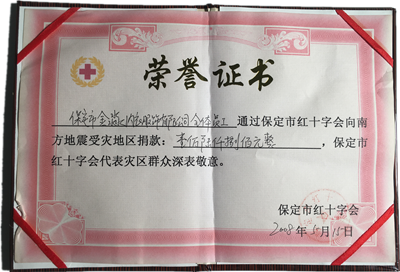 荣誉证书
保定市金 有限公司 全体员工 通过保定市红十字会向南
方地震受灾地区捌款: 元整 ,保定市
红十字会代表灾区群众深表敬意。
保定市红十字会
2008年5月15日